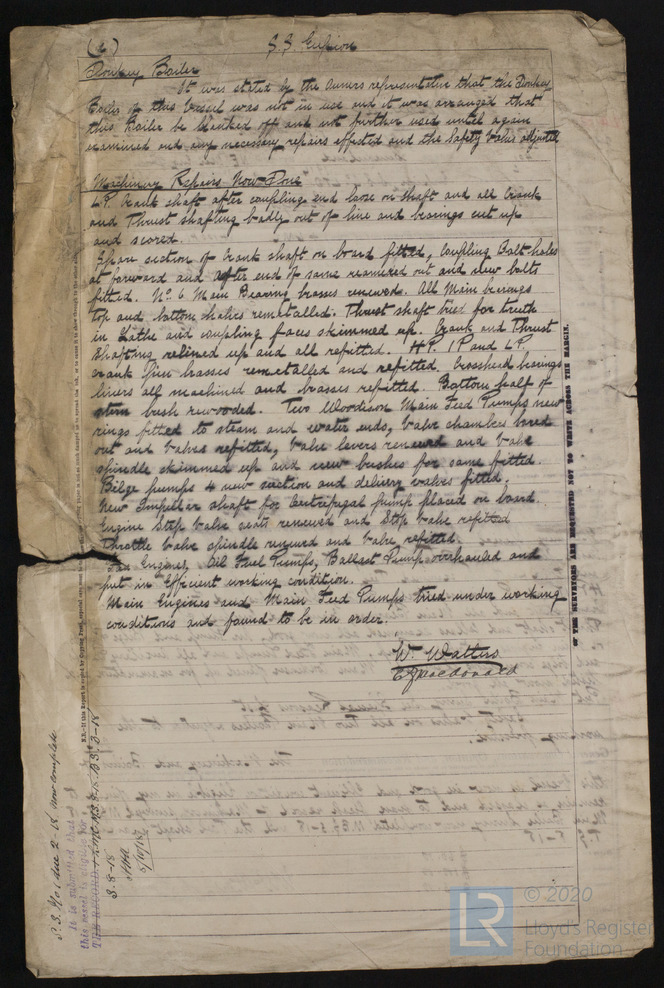 (2) S.S.
Donkey Boiler
It was stated by the Owners representative that the Donkey
Boiler of this Vessel was not in use and it was arranged that
this Boiler be blanked off and not further used until again
examined and any necessary repairs effected and the Safety Valves adjusted
Machinery Repairs Now Done
L.P. Crank shaft after coupling end loose on shaft and all Crank
and Thrust shafting badly out of line and bearings cut up
and scored.
Spare section of Crank shaft on board fitted, Coupling Bolt holes
at forward and after end of same reamered out and new bolts
fitted. No. 6 Main Bearing brasses renewed. All Main bearings
top and bottom halves remetalled. Thrust shaft tried for truth
in Lathe and coupling faces skimmed up. Crank and Thrust
Shafting relined up and all refitted. H.P. I.P. and L.P.
crank pin brasses remetalled and refitted. Crosshead bearings
liners all machined and brasses refitted. Bottom half of
stern bush rewooded. Two Woodison Main Feed Pumps new
rings fitted to steam and water ends, Valve chambers bored
out and Valves refitted, Valve levers renewed and Valve
spindle skimmed up and new bushes for same fitted.
Bilge pumps 4 new suction and delivery valves fitted.
New Impellar shaft for Centrifugal pump placed on board.
Engine Stop Valve seats renewed and Stop Valve refitted
Throttle Valve spindle renewed and Valve refitted.
Fan Engines, Oil Fuel Pumps, Ballast Pump overhauled and
put in Efficient working condition.
Main Engines and Main Feed Pumps tried under working
conditions and found to be in order.
W. Watters
OF THE SURVEYORS ARE REQUESTED NOT TO WRITE ACROSS THE MARGIN.
S.S. No. 1 due 2-18 now complete
It is submitted that
this vessel is eligible for
THE RECORD
3-8-18
LR
© 2020
Lloyd's Register
Foundation